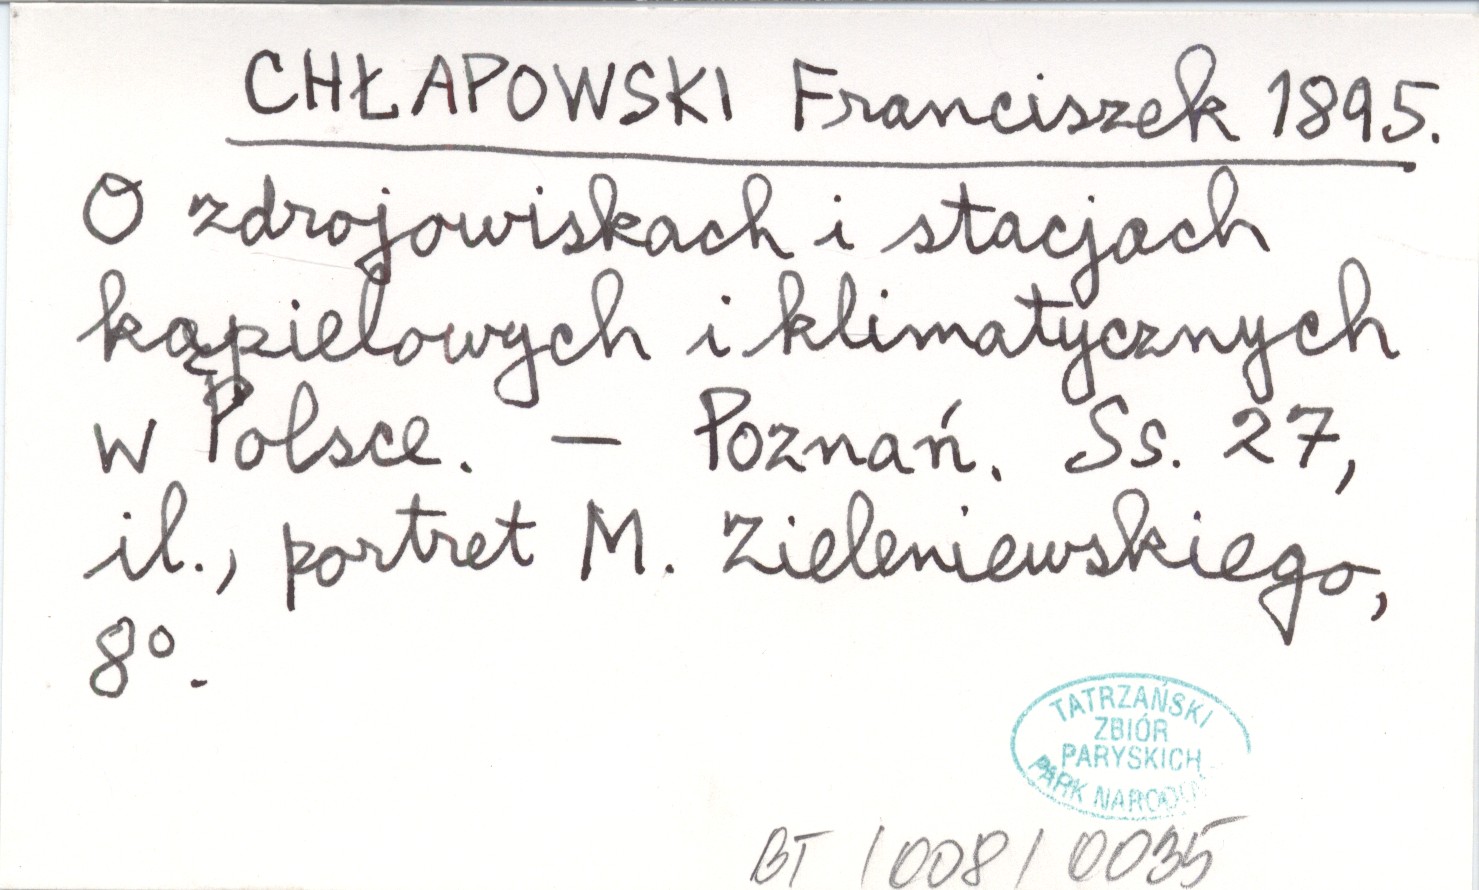 CHŁAPOWSKI Franciszek 1895.
O zdrojowiskach i stacjach
kąpielowych i klimatycznych
w Polsce. – Poznań. Ss. 27,
il., portret M. Zieleniewskiego,
8°.
TATRZAŃSKI
ZBIÓR
PARYSKICH
PARK NARODO
BT / 008 / 0035